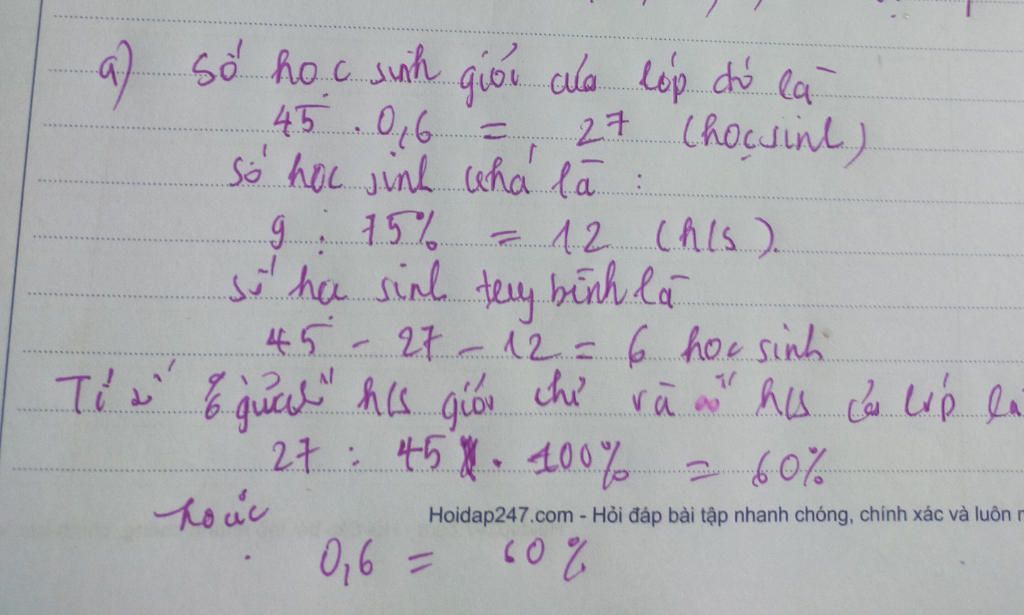 a) Số học sinh giỏi của lớp đó là
45 . 0,6 = 27 (học sinh)
Số học sinh khá là :
9 : 75% = 12 (h/s).
Số học sinh trung bình là
45 - 27 - 12 = 6 học sinh
Tỉ số % giữa số h/s giỏi và số h/s cả lớp là
27 : 45 . 100% = 60%
hoặc
Hoidap247.com - Hỏi đáp bài tập nhanh chóng, chính xác và luôn
0,6 = 60%